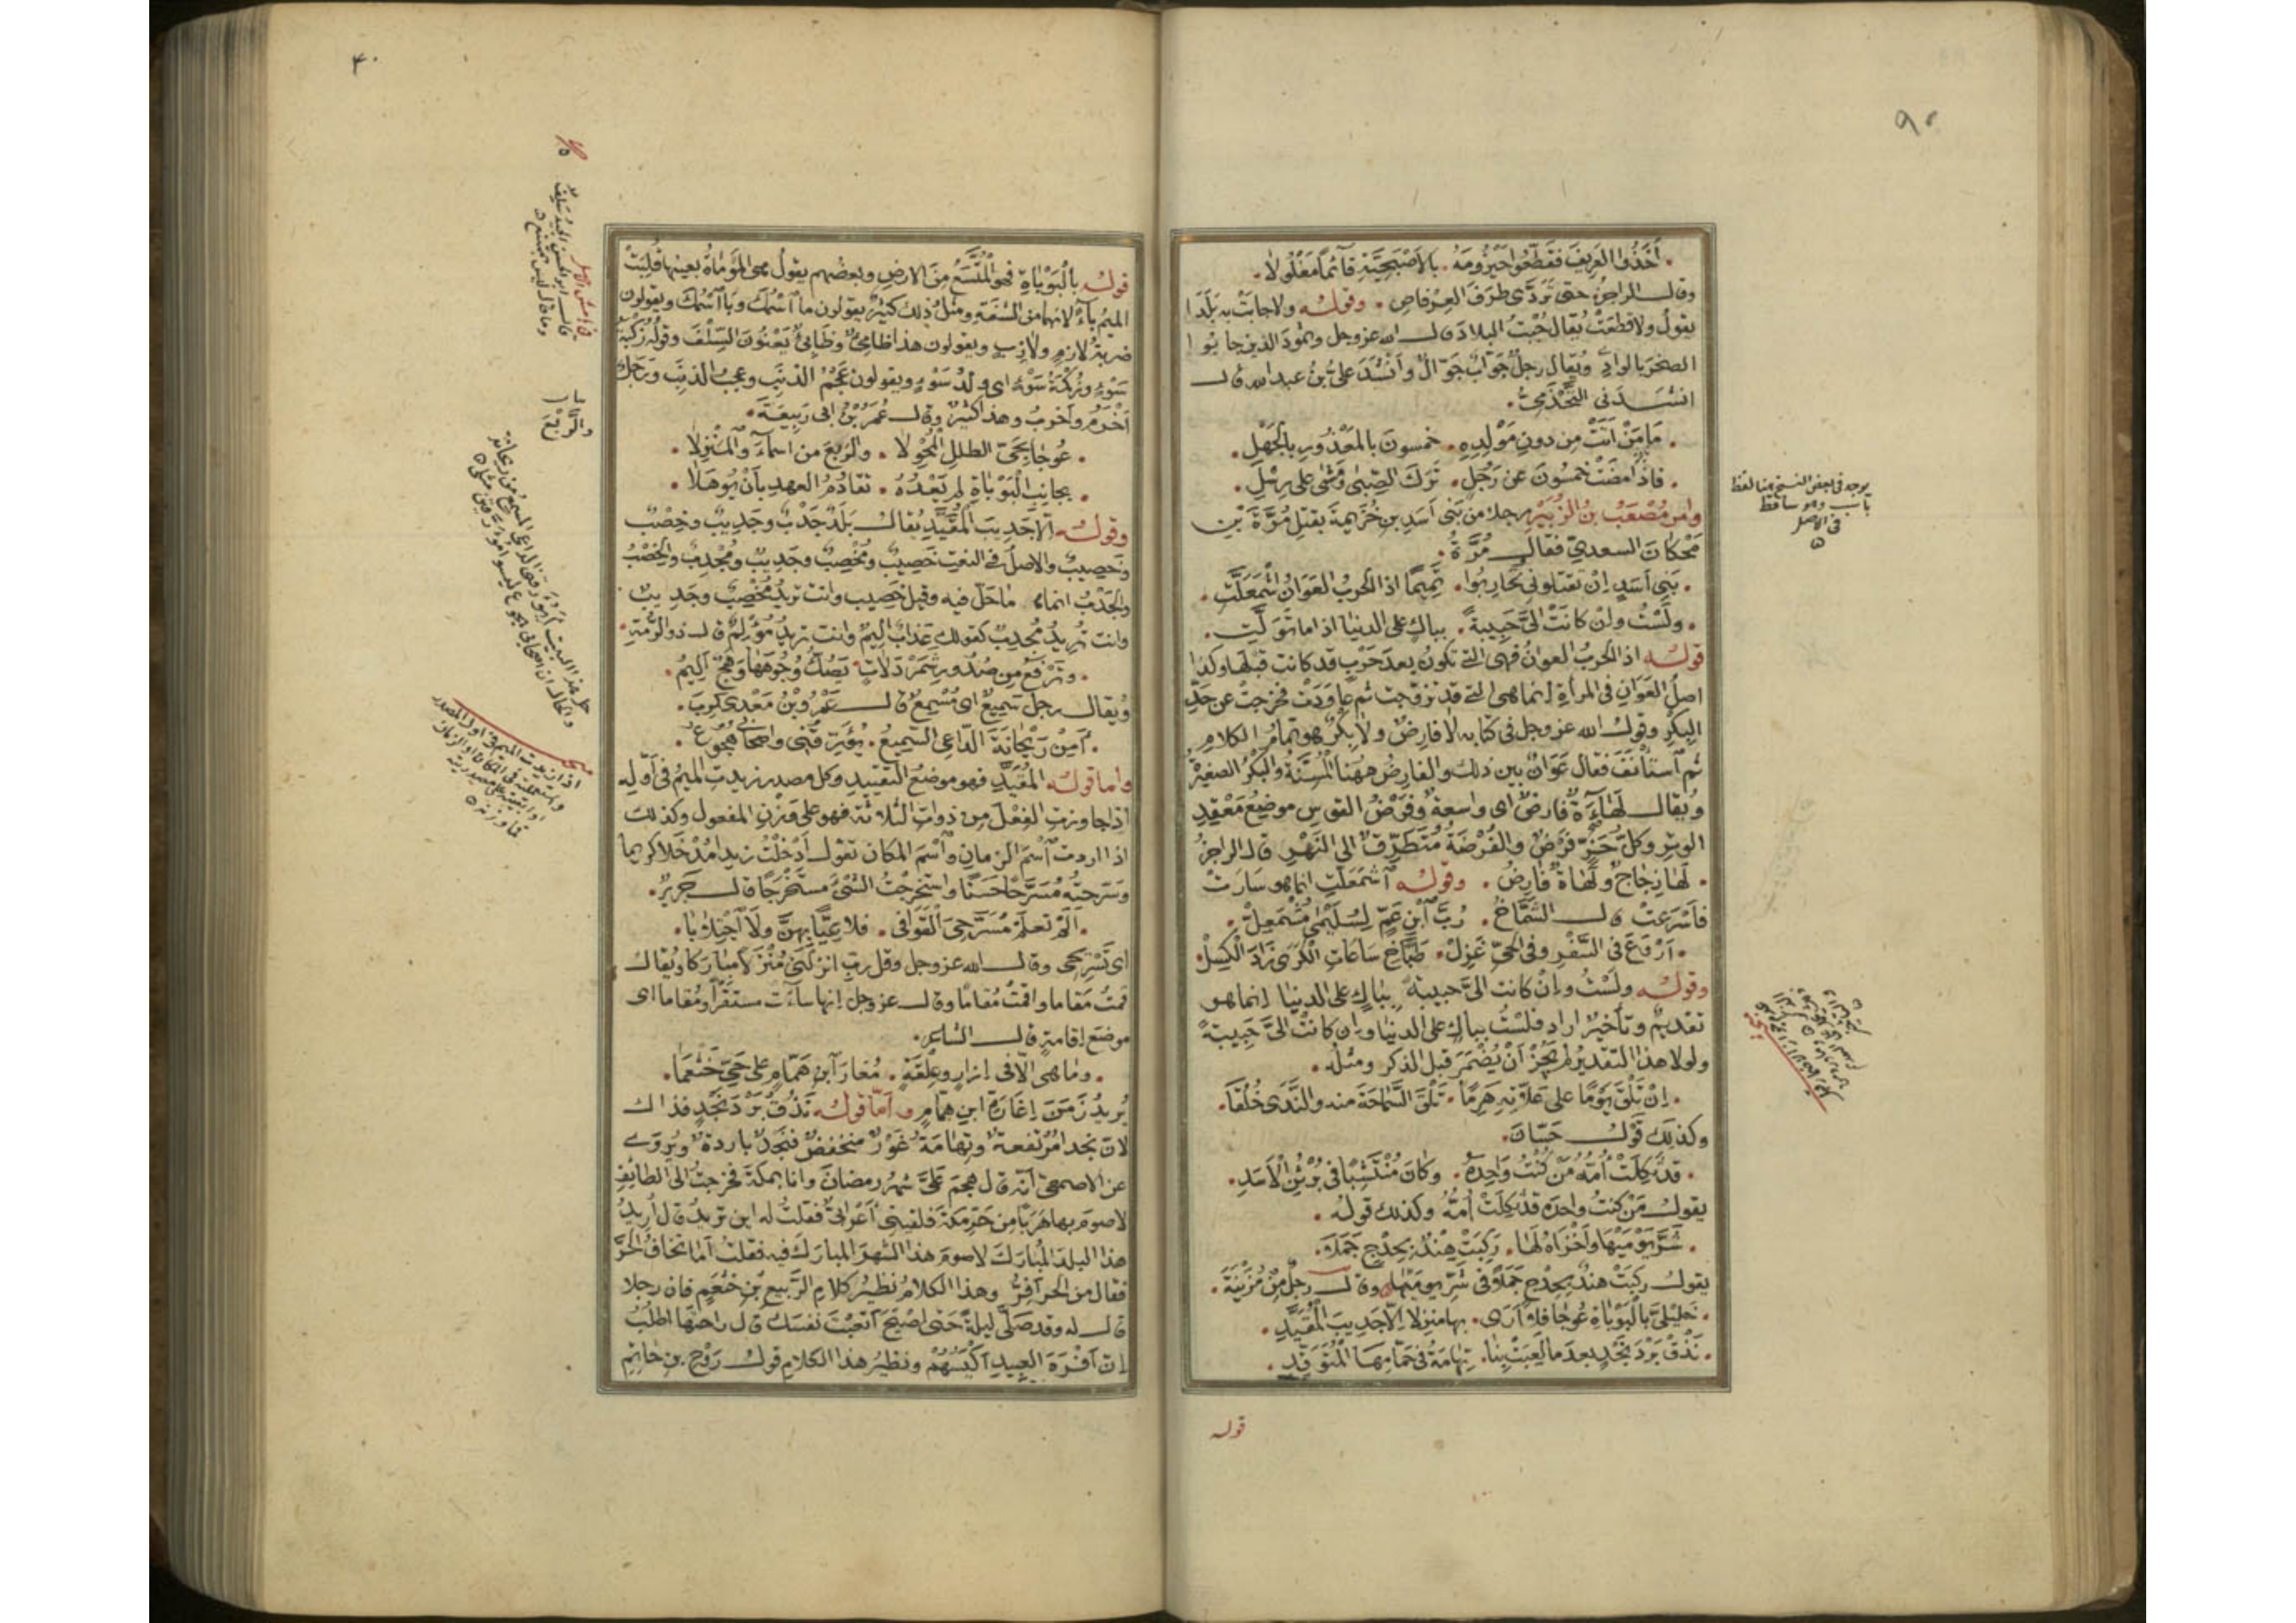 ٩٠
. أَخَذُوا العَرِيفَ فَقَطَّعُوا حَيْزُومَهُ . بالأَصْبَحِيَّةِ قَائمًا مَغْلُولًا .
وقال الراجز حتى تَرَدَّى طرَفَ العِرْفاصِ . وقوله ولا جابَتْ به بَلَدًا
يقول ولا قطعَتْ يُقال جُبْتُ البلادَ قال الله عز وجل وثمودَ الذين جابوا
الصخرَ بالوادِ ويُقال رجلٌ جَوّابٌ جَوّالٌ وأنشدَ علىُّ بنُ عبد الله قال
انشدنى القَحْذَمِىُّ .
. مَا مَنْ أَتَتْ مِن دونِ مَوْلِدِهِ . خمسونَ بالمَعْذُورِ بالجَهْلِ .
. فاذا مضَتْ خمسُونَ عن رَجُلٍ . تَرَكَ الصِّبى ومَشَى على رِسْلِ .
وامر مُصْعَبُ بنُ الزُّبَيْرِ رجلا من بَنى أسَدِ بنِ خُزَيمةَ بقَتْلِ مُرَّةَ بْنِ
مَحْكانَ السعدىّ فقال مُرَّةُ .
. بَنِى أسَدٍ إنْ تقتلونى تُحارِبُوا . تَمِيمًا اذا الحربُ العَوانُ اشْمَعَلَّتِ .
. ولَسْتُ وإن كانَتْ الىَّ حَبِيبةً . بباكٍ على الدنيا اذا ما تَوَلَّتِ .
قوله اذا الحربُ العوانُ فهى التى تكون بعدَ حَرْبٍ قد كانت قبلَها وكذا
اصلُ العَوانِ فى المرأة إنما هى التى قد تزوّجت ثم عاوَدَتْ فخرجتْ عن حَدِّ
البِكْرِ وقول الله عز وجل فى كتابه لا فارِضٌ ولا بِكْرٌ هو تمامُ الكلامِ
ثم استأنَفَ فقال عَوَانٌ بين ذلك والفارِضُ ههُنا المُسِنَّةُ والبِكْرُ الصغيرُ
ويُقال لَهَاةٌ فارِضٌ اى واسعةٌ وفَرْضُ القوسِ موضِعُ مَعْقِدِ
الوتر وكلُّ حَزٍّ فَرْضٌ والفُرْضَةُ مُتَطَرَّقٌ الى النَّهْرِ قال الراجز
. لها زِجاجٌ ولَهاةٌ فارِضُ . وقوله اشمَعَلَّتِ انما هو سَارَتْ
فأَسْرَعَتْ قال الشَّمَّاخُ . رُبَّ ابْنِ عَمٍّ لِسُلَيْمَى مُشْمَعِلّْ .
. أرْوَعَ فى السَّفْرِ وفى الحىّ غَزِلْ . طَبَّاخِ سَاعاتِ الكَرَى زَادَ الكَسِلْ .
وقوله ولَسْتُ وإنْ كانت الىَّ حبيبةً بباكٍ على الدنيا إنما هو
تقديمٌ وتأخيرٌ اراد فلسْتُ بباكٍ على الدنيا وإن كانتْ الىَّ حَبِيبةً
ولولا هذا التقديرُ لم يَجُزْ أنْ يُضْمَرَ قبل الذكر ومثله .
. إنْ تَلْقَ يَوْمًا على عِلّاتِهِ هَرِمًا . تَلْقَ السَّماحَةَ منه والنَّدَى خُلُقَا .
وكذلك قَوْلُ حَسّانَ .
. قد ثَكِلَتْ أُمُّهُ مَنْ كُنْتُ وَاحِدَهُ . وكانَ مُنْتَشِبًا فى بُرْثُنِ الأسَدِ .
يقول مَنْ كنتُ واحدَه قد ثكِلَتْ أمُّهُ وكذلك قوله .
. شَرَّ يَوْمَيْهَا وأخْزَاهُ لَهَا . رَكِبَتْ هِنْدُ بِحِدْجٍ جَمَلَا .
يقول ركبَتْ هندُ بِحِدْجٍ جَمَلًا فى شَرِّ يومَيْهَا وقال رجلٌ مِنْ مُزَيْنَةَ .
. خليلىَّ بالبَوْباةِ عُوجَا فلا أرَى . بها منزِلًا إلّا جَدِيبَ المُقَيَّدِ .
. نَذُقْ بَرْدَ نَجْدٍ بعدَ ما لَعِبَتْ بِنَا . تِهامَةُ فى حَمّامِهَا المُتَوَقِّدِ .
قوله
يوجد فى بعض النسخ هنا لفظ
باب وهو ساقط
فى الاصل
٤٠
قوله بالْبَوْباةِ فهو المُتَّسَعُ مِنَ الارضِ وبعضُهم يقول هى المَوْماةُ بعينها قُلِبَتْ
الميمُ باءً لانهما من الشفَةِ ومثلُ ذلك كثيرٌ يقولون ما اسْمُكَ وبا اسْمُكَ ويقولون
ضربةُ لازِمٍ ولازِبٍ ويقولون هذا ظَامِى وظَابِى يَعْنُونَ السِّلْفَ وقوله زُكْبَةُ
سَوْءٍ وزُكْمَةُ سَوْءٍ اى ولدُ سَوْءٍ ويقولون عَجْمُ الذنَبِ وعَجْبُ الذنَبِ ورَجُلٌ
أخْرَمُ وأخْرَبُ وهذا كثيرٌ وقال عُمَرُ بْنُ ابى رَبِيعَةَ .
. عُوجَا نُحَىِّ الطللَ المُحْوِلَا . والرَّبْعَ من أسماءَ والمَنْزِلَا .
. بجانِبِ البَوْباةِ لم يَعْدُهُ . تقادُمُ العهدِ بأَنْ يُؤهَلَا .
وقوله إلّا جَدِيبَ المُقَيَّدِ يُقال بَلَدٌ جَدْبٌ وجَدِيبٌ وخِصْبٌ
وخَصِيبٌ والاصلُ فى النعتِ خَصِيبٌ ومُخْصِبٌ وجَدِيبٌ ومُجْدِبٌ والخِصْبُ
والجَدْبُ انما هما ما حَلَّ فيه وقيل خَصِيب وانت تريدُ مُخْصِبٌ وجَدِيبٌ
وانت تُرِيدُ مُجْدِبٌ كقولك عَذابٌ أليمٌ وانت تريدُ مُؤْلِمٌ قال ذو الرُّمَّةِ .
. ونَرْفَعُ مِن صُدُورِ شَمَرْدَلاتٍ . يَصُكُّ وُجُوهَهَا وَهَجٌ ألِيمُ .
ويُقال رجل سَمِيعٌ اى مُسْمِعٌ قال عَمْرُو بْنُ مَعْدِى كَرِبَ .
. أمِنْ رَيْحانَةَ الدّاعِى السَّمِيعُ . يُؤَرِّقُنِى واصْحابى هُجُوعُ .
واما قوله المُقَيَّدِ فهو موضِعُ التقييدِ وكل مصدرٍ زيدت الميمُ فى أوّلِه
اذا جاوزتَ الفِعْلَ مِن ذواتِ الثلاثةِ فهو على وَزْنِ المفعولِ وكذلك
اذا اردت اسْمَ الزمانِ واسْمَ المكانِ تقول أدْخَلْتُ زيدًا مُدْخَلًا كريمًا
وسَرّحتُه مُسَرَّحًا حَسَنًا واستخرجْتُ الشىْءَ مُسْتَخْرَجًا قال جَرِيرٌ .
. ألمْ تعلَمْ مُسَرَّحِىَ القَوَافِى . فلا عِيًّا بِهِنَّ ولا اجْتِلَابَا .
اى تَسْرِيحى وقال الله عز وجل وقل رب انزلنى مُنْزَلًا مباركا ويُقال
قمتُ مَقاما واقمتُ مُقامًا وقال عز وجل إنها ساءَت مستقَرًّا ومُقاما اى
موضعَ إقامةٍ قال الشاعر .
. وما هى إلّا فى إزارٍ وعِلْقَةٍ . مُغارَ ابنِ هَمّامٍ على حَىِّ خَثْعَمَا .
يُرِيدُ زَمَنَ إغارَةِ ابنِ همّامٍ وأمّا قوله نَذُقْ بَرْدَ نَجْدٍ فذاك
لانّ نجدا مُرْتفعةٌ وتِهامَةُ غَوْرٌ منخفضٌ فنجدٌ باردةٌ ويُروَى
عن الاصمعىّ أنه قال هجم علىَّ شهرُ رمضانَ وانا بمكّةَ فخرجتُ الى الطائفِ
لاصومَ بها هَرَبًا من حَرِّ مكّةَ فلقينى أعْرابىٌّ فقلتُ له اين تريدُ قال أُرِيدُ
هذا البلدَ المُبارَكَ لاصومَ هذا الشهرَ المبارَكَ فيه فقلتُ أمَا تخافُ الحَرَّ
فقال من الحر أفِرُّ وهذا الكلامُ نظيرُ كلامِ الرَّبيع بْنِ خُثَيْمٍ فان رجلا
قال له وقد صَلّى ليلةً حَتى اصْبَحَ أتعَبْتَ نفسَك قال راحتَها اطلُبُ
إنّ أفْرَهَ العَبيدِ أكْيَسُهُمْ ونظيرُ هذا الكلامِ قول رَوْحِ بنِ حاتِمِ
والرَّبْعَ